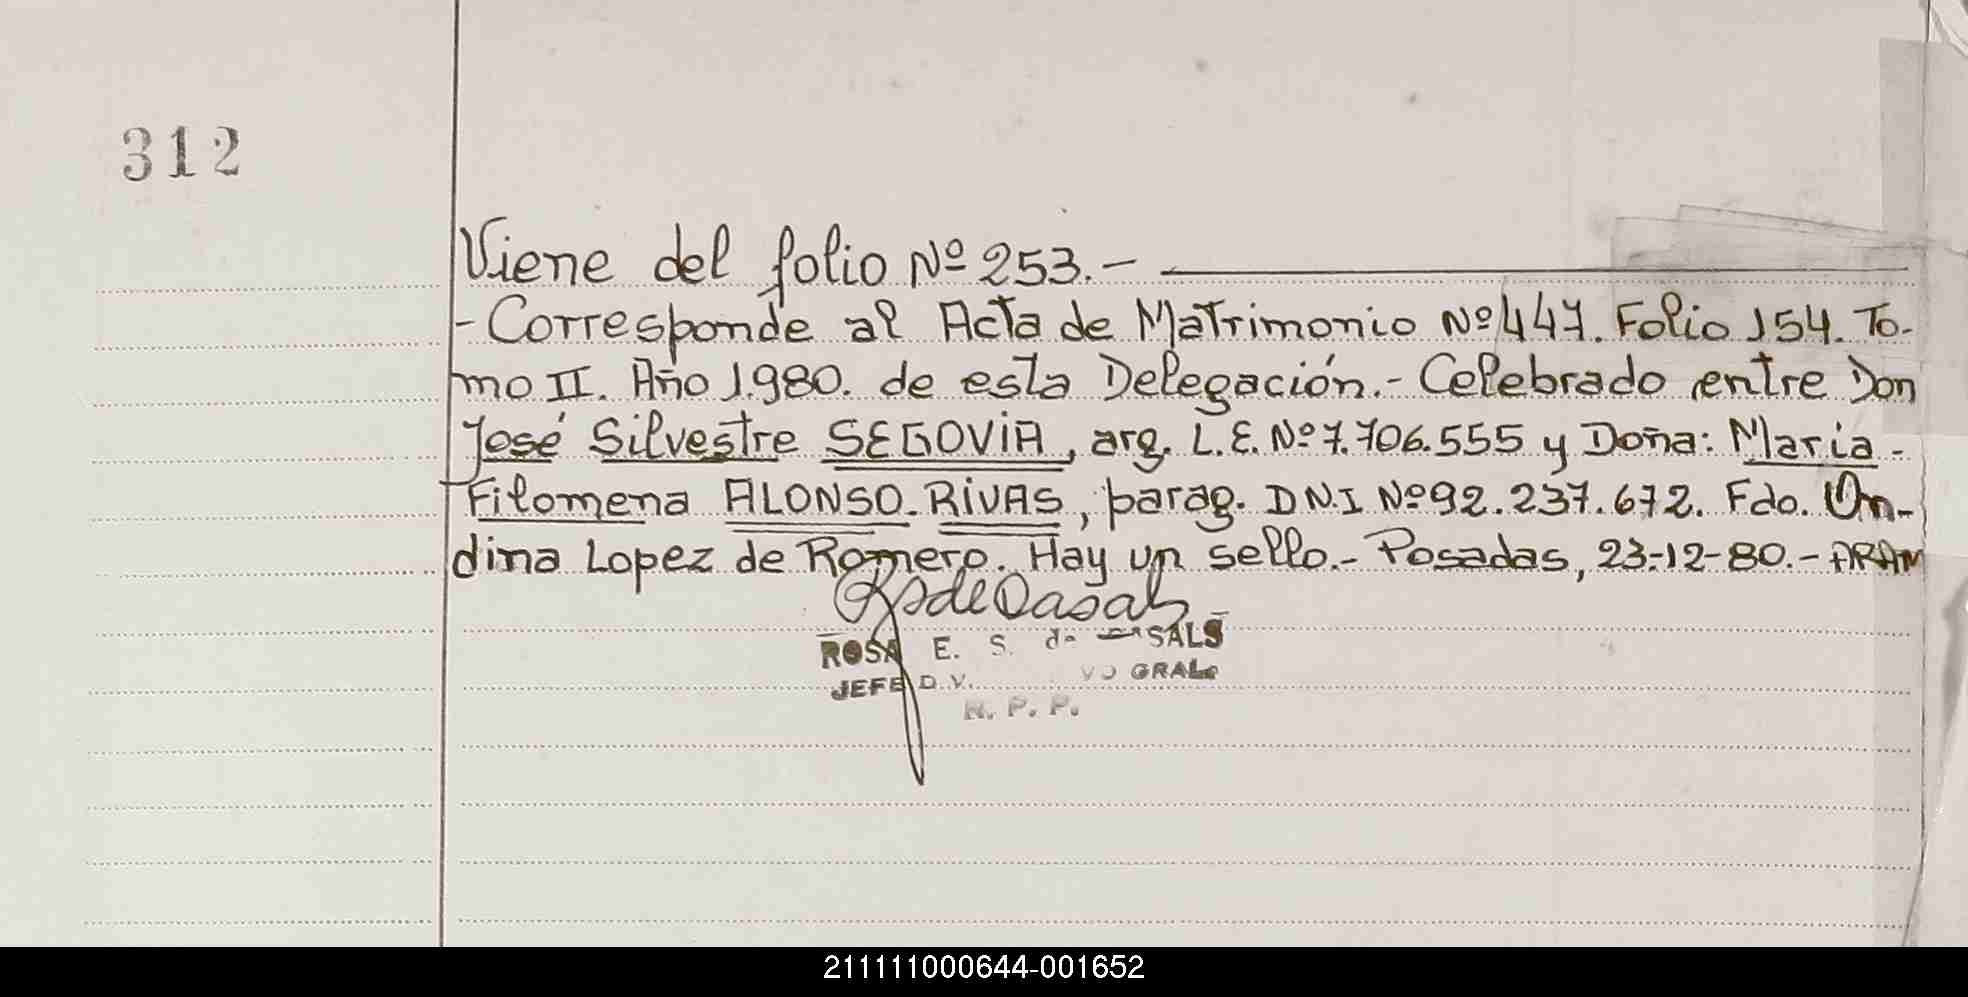 312
Viene del folio Nº 253.-
- Corresponde al Acta de Matrimonio Nº 447. Folio 154. To-
mo II. Año 1.980. de esta Delegación.- Celebrado entre Don
José Silvestre SEGOVIA, arg. L.E. Nº 7.706.555 y Doña: Maria-
Filomena ALONSO-RIVAS, parag. DN.I Nº 92.237.672. Fdo. On-
dina Lopez de Romero. Hay un sello.- Posadas, 23-12-80.- ARAM
ROSA E. S. de SALS
JEFE D V. VO GRAL.
R. P. P.
211111000644-001652